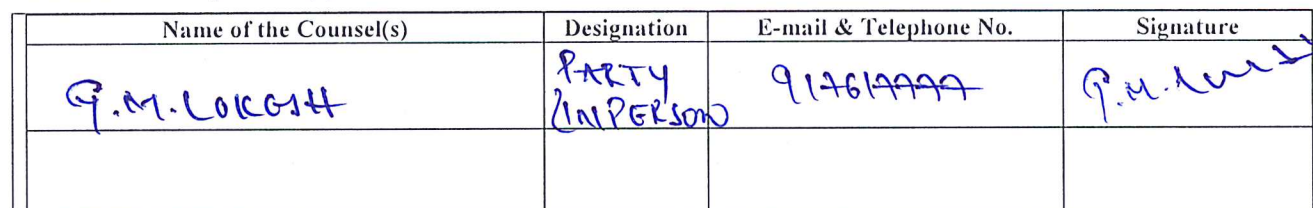 Name of the Counsel(s) Designation E-mail & Telephone No. Signature
G.M. LOKESH PARTY G.M.
INPERSON